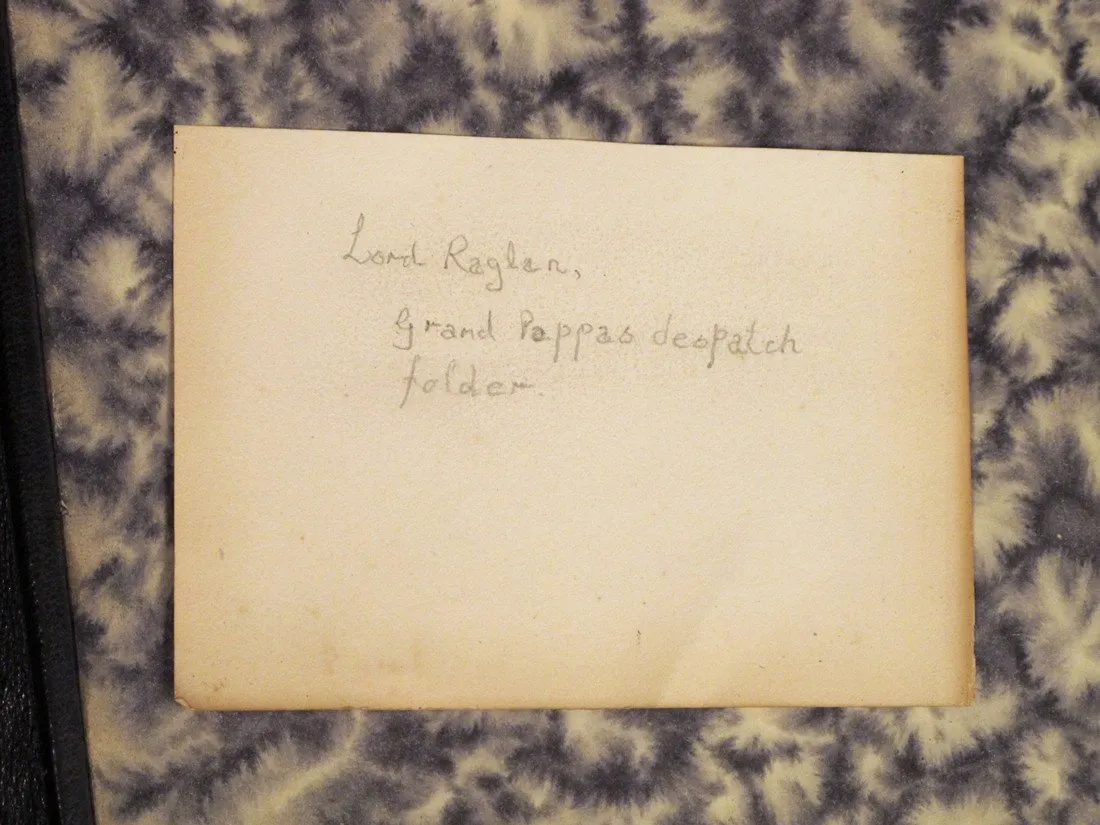 Lord Raglan,
Grand Pappas despatch
folder.